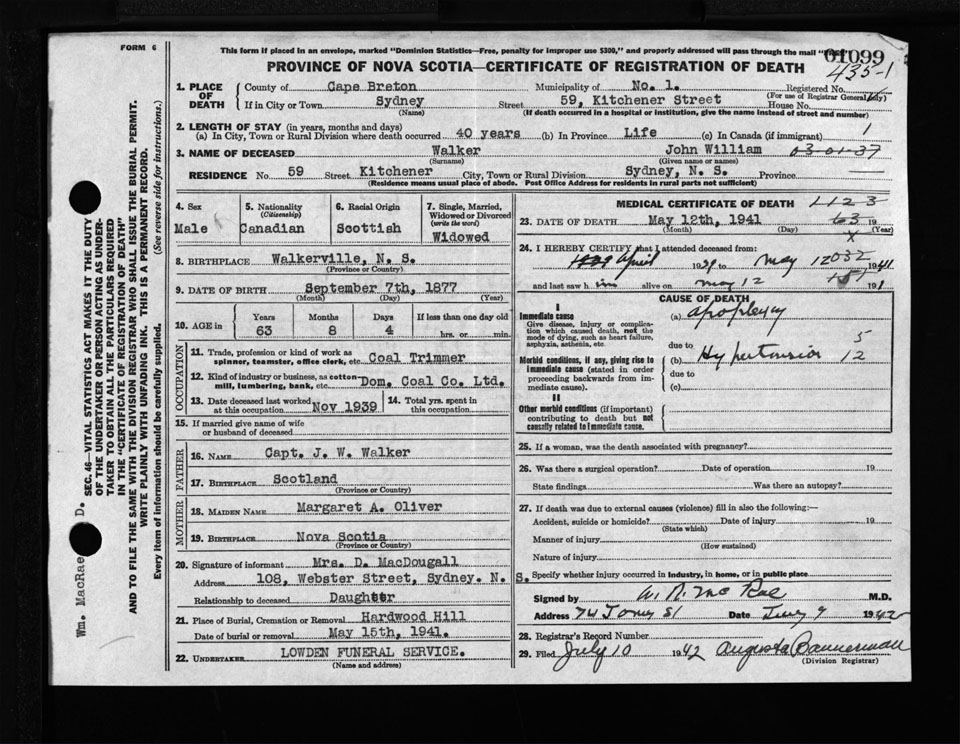 FORM 6
This form if placed in an envelope, marked "Dominion Statistics—Free, penalty for improper use $300," and properly addressed will pass through the mail
01099
435-1
PROVINCE OF NOVA SCOTIA—CERTIFICATE OF REGISTRATION OF DEATH
1. PLACE OF DEATH
County of Cape Breton Municipality of No. 1. Registered No.
(For use of Registrar General only)
If in City or Town Sydney Street 59, Kitchener Street House No.
(Name) (If death occurred in a hospital or institution, give the name instead of street and number)
2. LENGTH OF STAY (in years, months and days)
(a) In City, Town or Rural Division where death occurred 40 years (b) In Province Life (c) In Canada (if immigrant) 1
3. NAME OF DECEASED Walker John William 03-01-37
(Surname) (Given name or names)
RESIDENCE No. 59 Street Kitchener City, Town or Rural Division Sydney, N. S. Province
(Residence means usual place of abode. Post Office Address for residents in rural parts not sufficient)
4. Sex
Male
5. Nationality
(Citizenship)
Canadian
6. Racial Origin
Scottish
7. Single, Married, Widowed or Divorced
(write the word)
Widowed
8. BIRTHPLACE Walkerville, N. S.
(Province or Country)
9. DATE OF BIRTH September 7th, 1877
(Month) (Day) (Year)
10. AGE in
Years Months Days If less than one day old
63 8 4 hrs. or min.
OCCUPATION
11. Trade, profession or kind of work as
spinner, teamster, office clerk, etc. Coal Trimmer
12. Kind of industry or business, as cotton-
mill, lumbering, bank, etc. Dom. Coal Co. Ltd.
13. Date deceased last worked
at this occupation Nov 1939
14. Total yrs. spent in
this occupation
15. If married give name of wife
or husband of deceased
FATHER
16. NAME Capt. J. W. Walker
17. BIRTHPLACE Scotland
(Province or Country)
MOTHER
18. MAIDEN NAME Margaret A. Oliver
19. BIRTHPLACE Nova Scotia
(Province or Country)
20. Signature of informant Mrs. D. MacDougall
Address 108, Webster Street, Sydney. N. S.
Relationship to deceased Daughter
21. Place of Burial, Cremation or Removal Hardwood Hill
Date of burial or removal May 15th, 1941.
22. UNDERTAKER LOWDEN FUNERAL SERVICE.
(Name and address)
MEDICAL CERTIFICATE OF DEATH
1123
23. DATE OF DEATH May 12th, 1941 63 19
(Month) (Day) (Year)
X
24. I HEREBY CERTIFY that I attended deceased from:
April 1939 to May 12 1941
032
and last saw him alive on May 12 191
CAUSE OF DEATH
Immediate cause
Give disease, injury or complication which caused death, not the mode of dying, such as heart failure, asphyxia, asthenia, etc.
(a) Apoplexy
due to 5
Morbid conditions, if any, giving rise to immediate cause (stated in order proceeding backwards from immediate cause).
(b) Hypertension 12
due to
(c)
II
Other morbid conditions (if important) contributing to death but not causally related to immediate cause.
25. If a woman, was the death associated with pregnancy?
26. Was there a surgical operation? Date of operation 19
State findings Was there an autopsy?
27. If death was due to external causes (violence) fill in also the following:—
Accident, suicide or homicide? Date of injury 19
(State which)
Manner of injury
(How sustained)
Nature of injury
Specify whether injury occurred in industry, in home, or in public place
Signed by W. D. McRae M.D.
Address 74 Tony St Date July 9 1942
28. Registrar's Record Number
29. Filed July 10 1942 Augusta Bannerman
(Division Registrar)
SEC. 46—VITAL STATISTICS ACT MAKES IT THE DUTY
OF THE UNDERTAKER OR PERSON ACTING AS UNDER-
TAKER TO OBTAIN ALL THE PARTICULARS REQUIRED
IN THE "CERTIFICATE OF REGISTRATION OF DEATH"
AND TO FILE THE SAME WITH THE DIVISION REGISTRAR WHO SHALL ISSUE THE BURIAL PERMIT.
WRITE PLAINLY WITH UNFADING INK. THIS IS A PERMANENT RECORD.
Every item of information should be carefully supplied. (See reverse side for instructions.)
Wm. MacRae D.